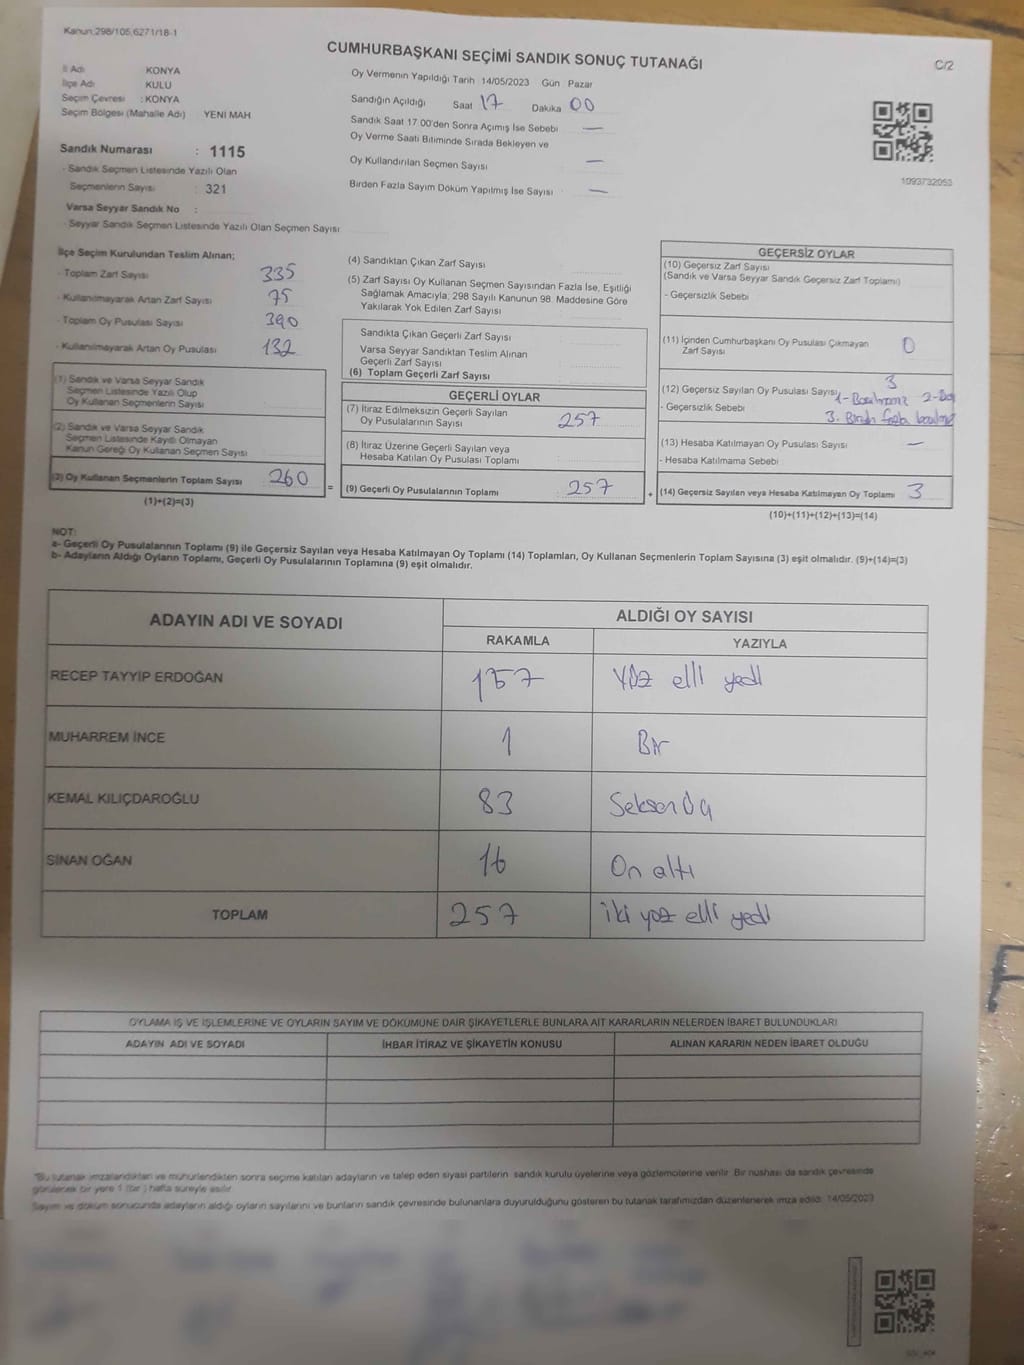 Kanun:298/105,6271/18-1
CUMHURBAŞKANI SEÇİMİ SANDIK SONUÇ TUTANAĞI
C/2
İl Adı KONYA
İlçe Adı KULU
Seçim Çevresi : KONYA
Seçim Bölgesi (Mahalle Adı) YENİ MAH
Sandık Numarası : 1115
- Sandık Seçmen Listesinde Yazılı Olan
Seçmenlerin Sayısı : 321
Varsa Seyyar Sandık No :
- Seyyar Sandık Seçmen Listesinde Yazılı Olan Seçmen Sayısı
Oy Vermenin Yapıldığı Tarih 14/05/2023 Gün Pazar
Sandığın Açıldığı Saat 17 Dakika 00
Sandık Saat 17:00'den Sonra Açımış İse Sebebi —
Oy Verme Saati Bitiminde Sırada Bekleyen ve
Oy Kullandırılan Seçmen Sayısı —
Birden Fazla Sayım Döküm Yapılmış İse Sayısı —
1093732053
İlçe Seçim Kurulundan Teslim Alınan;
- Toplam Zarf Sayısı 335
- Kullanılmayarak Artan Zarf Sayısı 75
- Toplam Oy Pusulası Sayısı 390
- Kullanılmayarak Artan Oy Pusulası 132
(1) Sandık ve Varsa Seyyar Sandık
Seçmen Listesinde Yazılı Olup
Oy Kullanan Seçmenlerin Sayısı
(2) Sandık ve Varsa Seyyar Sandık
Seçmen Listesinde Kayıtlı Olmayan
Kanun Gereği Oy Kullanan Seçmen Sayısı
(3) Oy Kullanan Seçmenlerin Toplam Sayısı 260
(1)+(2)=(3)
(4) Sandıktan Çıkan Zarf Sayısı
(5) Zarf Sayısı Oy Kullanan Seçmen Sayısından Fazla İse, Eşitliği
Sağlamak Amacıyla, 298 Sayılı Kanunun 98. Maddesine Göre
Yakılarak Yok Edilen Zarf Sayısı
Sandıkta Çıkan Geçerli Zarf Sayısı
Varsa Seyyar Sandıktan Teslim Alınan
Geçerli Zarf Sayısı
(6) Toplam Geçerli Zarf Sayısı
GEÇERLİ OYLAR
(7) İtiraz Edilmeksizin Geçerli Sayılan
Oy Pusulalarının Sayısı 257
(8) İtiraz Üzerine Geçerli Sayılan veya
Hesaba Katılan Oy Pusulası Toplamı
= (9) Geçerli Oy Pusulalarının Toplamı 257 +
GEÇERSİZ OYLAR
(10) Geçersiz Zarf Sayısı
(Sandık ve Varsa Seyyar Sandık Geçersiz Zarf Toplamı)
- Geçersizlik Sebebi
(11) İçinden Cumhurbaşkanı Oy Pusulası Çıkmayan
Zarf Sayısı 0
(12) Geçersiz Sayılan Oy Pusulası Sayısı 3
- Geçersizlik Sebebi
(13) Hesaba Katılmayan Oy Pusulası Sayısı —
- Hesaba Katılmama Sebebi
(14) Geçersiz Sayılan veya Hesaba Katılmayan Oy Toplamı 3
(10)+(11)+(12)+(13)=(14)
NOT:
a- Geçerli Oy Pusulalarının Toplamı (9) ile Geçersiz Sayılan veya Hesaba Katılmayan Oy Toplamı (14) Toplamları, Oy Kullanan Seçmenlerin Toplam Sayısına (3) eşit olmalıdır. (9)+(14)=(3)
b- Adayların Aldığı Oyların Toplamı, Geçerli Oy Pusulalarının Toplamına (9) eşit olmalıdır.
ADAYIN ADI VE SOYADI ALDIĞI OY SAYISI
RAKAMLA YAZIYLA
RECEP TAYYİP ERDOĞAN 157 Yüz elli yedi
MUHARREM İNCE 1 Bir
KEMAL KILIÇDAROĞLU 83 Seksen üç
SİNAN OĞAN 16 On altı
TOPLAM 257 iki yüz elli yedi
OYLAMA İŞ VE İŞLEMLERİNE VE OYLARIN SAYIM VE DÖKÜMÜNE DAİR ŞİKAYETLERLE BUNLARA AİT KARARLARIN NELERDEN İBARET BULUNDUKLARI
ADAYIN ADI VE SOYADI İHBAR İTİRAZ VE ŞİKAYETİN KONUSU ALINAN KARARIN NEDEN İBARET OLDUĞU
*Bu tutanak imzalandıktan ve mühürlendikten sonra seçime katılan adayların ve talep eden siyasi partilerin sandık kurulu üyelerine veya gözlemcilerine verilir. Bir nüshası da sandık çevresinde
görülecek bir yere 1 (bir) hafta süreyle asılır.
Sayım ve döküm sonucunda adayların aldığı oyların sayılarını ve bunların sandık çevresinde bulunanlara duyurulduğunu gösteren bu tutanak tarafımızdan düzenlenerek imza edildi. 14/05/2023